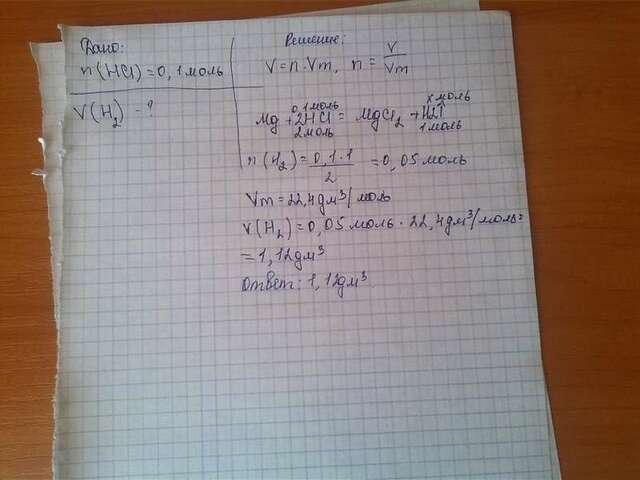 Дано:
n(HCl) = 0,1 моль
V(H₂) - ?
Решение:
V = n · Vm, n = V/Vm
0,1 моль x моль
Mg + 2HCl = MgCl₂ + H₂↑
2 моль 1 моль
n(H₂) = 0,1 · 1 / 2 = 0,05 моль
Vm = 22,4 дм³/моль
V(H₂) = 0,05 моль · 22,4 дм³/моль =
= 1,12 дм³
Ответ: 1,12 дм³